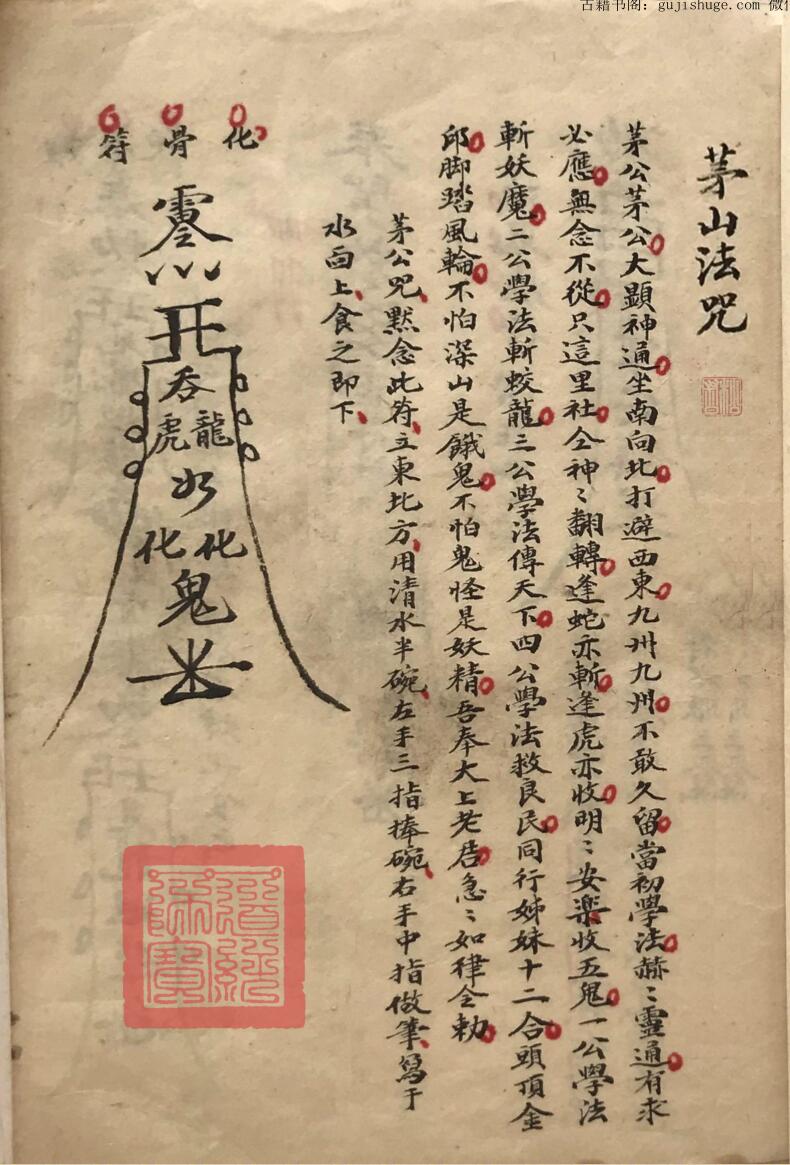 古籍书阁：gujishuge.com 微信
茅山法咒
茅公茅公大顕神通坐南向北打避西東九州九州不敢久留當初學法赫〻靈通有求
必應無念不從只這里社仝神〻翻轉逢蛇亦斬逢虎亦收明〻安楽收五鬼一公學法
斬妖魔二公學法斬蛟龍三公學法傳天下四公學法救良民同行姊妹十二合頭頂金
邱脚踏風輪不怕深山是餓鬼不怕鬼怪是妖精吾奉大上老君急〻如律令勅
茅公咒默念此符立東北方用清水半碗左手三指捧碗右手中指做筆寫于
水面上食之即下
化骨符
吞
龍虎
水
化化
鬼
道經師寶